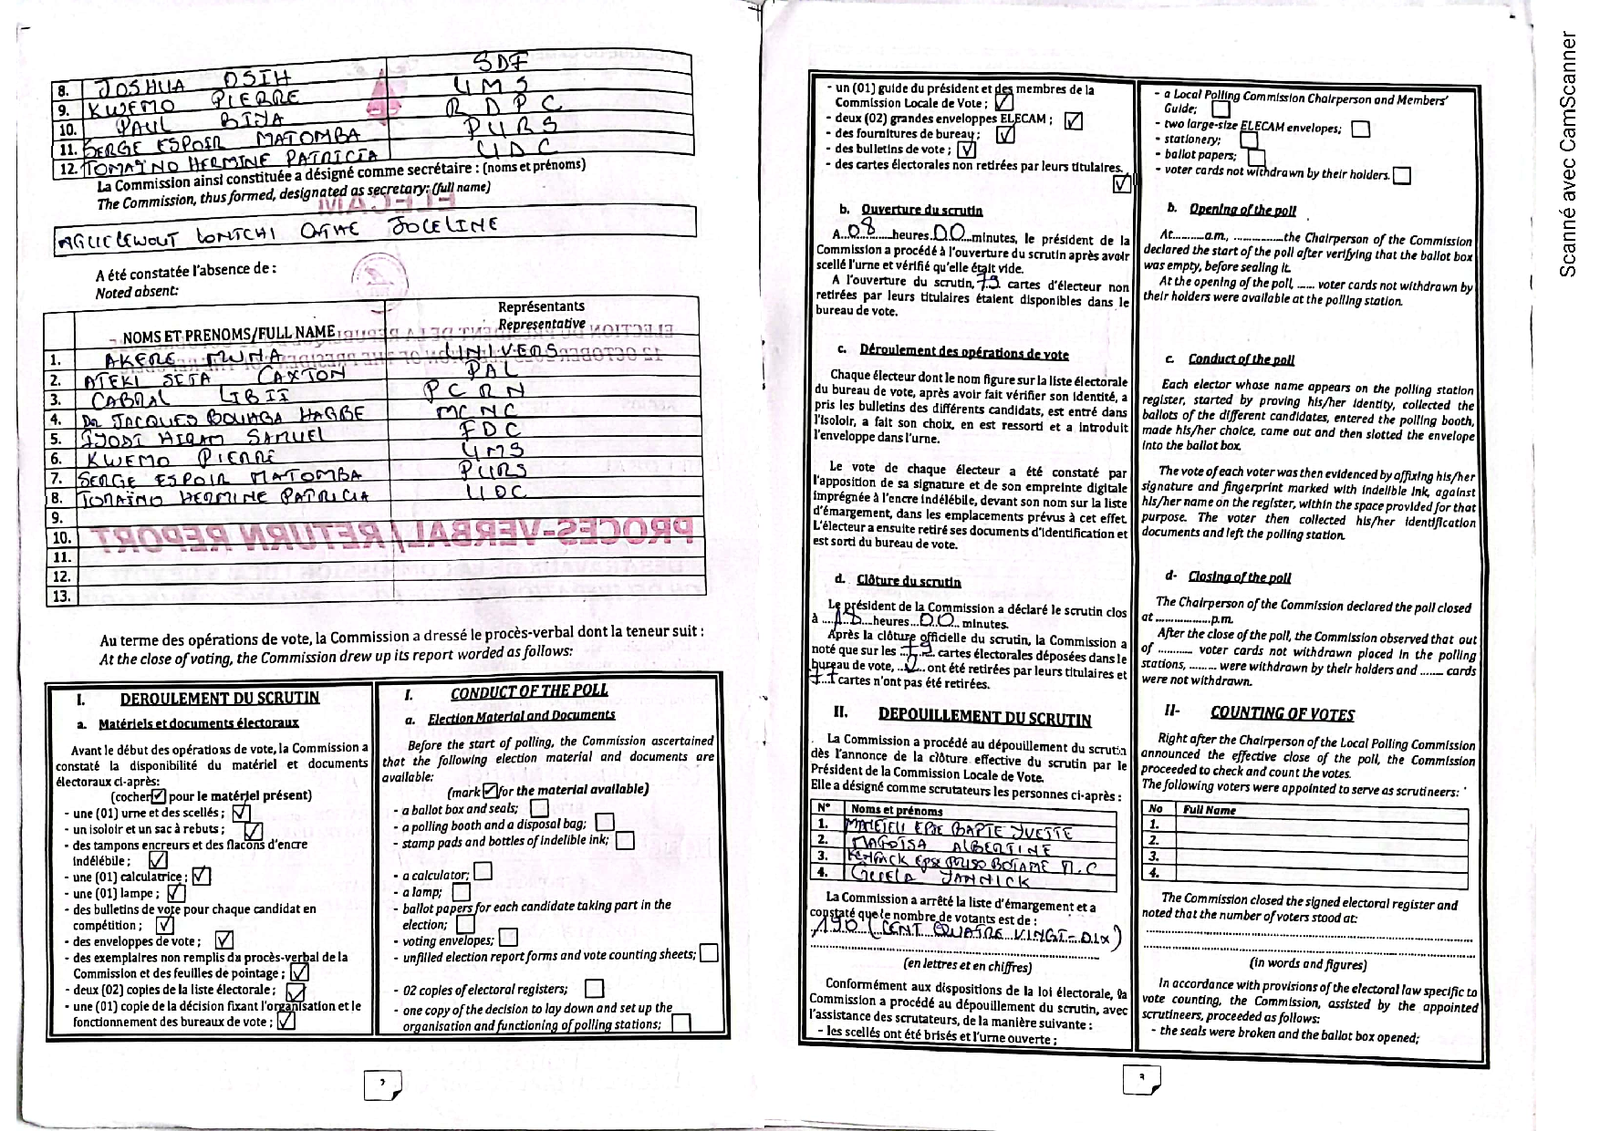 8. JOSHUA OSIH SDF
9. KWEMO PIERRE UMS
10. PAUL BIYA RDPC
11. SERGE ESPOIR MATOMBA PURS
12. TOMAÏNO HERMINE PATRICIA UDC
La Commission ainsi constituée a désigné comme secrétaire : (noms et prénoms)
The Commission, thus formed, designated as secretary: (full name)
JOCELINE
A été constatée l'absence de :
Noted absent:
NOMS ET PRENOMS/FULL NAME Représentants
Representative
1. AKERE MUNA UNIVERS
2. ATEKI SETA CAXTON PAL
3. CABRAL LIBII PCRN
4. Dr JACQUES BOUHAGA HAGBE MCNC
5. IYODI HIRAM SAMUEL FDC
6. KWEMO PIERRE UMS
7. SERGE ESPOIR MATOMBA PURS
8. TOMAÏNO HERMINE PATRICIA UDC
9.
10.
11.
12.
13.
Au terme des opérations de vote, la Commission a dressé le procès-verbal dont la teneur suit :
At the close of voting, the Commission drew up its report worded as follows:
I. DEROULEMENT DU SCRUTIN
a. Matériels et documents électoraux
Avant le début des opérations de vote, la Commission a
constaté la disponibilité du matériel et documents
électoraux ci-après:
(cocher ☑ pour le matériel présent)
- une (01) urne et des scellés ; ☑
- un isoloir et un sac à rebuts ; ☑
- des tampons encreurs et des flacons d'encre
indélébile ; ☑
- une (01) calculatrice ; ☑
- une (01) lampe ; ☑
- des bulletins de vote pour chaque candidat en
compétition ; ☑
- des enveloppes de vote ; ☑
- des exemplaires non remplis du procès-verbal de la
Commission et des feuilles de pointage ; ☑
- deux (02) copies de la liste électorale ; ☑
- une (01) copie de la décision fixant l'organisation et le
fonctionnement des bureaux de vote ; ☑
I. CONDUCT OF THE POLL
a. Election Material and Documents
Before the start of polling, the Commission ascertained
that the following election material and documents are
available:
(mark ☑ for the material available)
- a ballot box and seals; ☐
- a polling booth and a disposal bag; ☐
- stamp pads and bottles of indelible ink; ☐
- a calculator; ☐
- a lamp; ☐
- ballot papers for each candidate taking part in the
election; ☐
- voting envelopes; ☐
- unfilled election report forms and vote counting sheets; ☐
- 02 copies of electoral registers; ☐
- one copy of the decision to lay down and set up the
organisation and functioning of polling stations; ☐
2
- un (01) guide du président et des membres de la
Commission Locale de Vote ; ☑
- deux (02) grandes enveloppes ELECAM ; ☑
- des fournitures de bureau ; ☑
- des bulletins de vote ; ☑
- des cartes électorales non retirées par leurs titulaires. ☑
b. Ouverture du scrutin
A 08 heures 00 minutes, le président de la
Commission a procédé à l'ouverture du scrutin après avoir
scellé l'urne et vérifié qu'elle était vide.
A l'ouverture du scrutin, 79 cartes d'électeur non
retirées par leurs titulaires étaient disponibles dans le
bureau de vote.
c. Déroulement des opérations de vote
Chaque électeur dont le nom figure sur la liste électorale
du bureau de vote, après avoir fait vérifier son identité, a
pris les bulletins des différents candidats, est entré dans
l'isoloir, a fait son choix, en est ressorti et a introduit
l'enveloppe dans l'urne.
Le vote de chaque électeur a été constaté par
l'apposition de sa signature et de son empreinte digitale
imprégnée à l'encre indélébile, devant son nom sur la liste
d'émargement, dans les emplacements prévus à cet effet.
L'électeur a ensuite retiré ses documents d'identification et
est sorti du bureau de vote.
d. Clôture du scrutin
Le président de la Commission a déclaré le scrutin clos
à 18 heures 00 minutes.
Après la clôture officielle du scrutin, la Commission a
noté que sur les 79 cartes électorales déposées dans le
bureau de vote, 2 ont été retirées par leurs titulaires et
77 cartes n'ont pas été retirées.
II. DEPOUILLEMENT DU SCRUTIN
La Commission a procédé au dépouillement du scrutin
dès l'annonce de la clôture effective du scrutin par le
Président de la Commission Locale de Vote.
Elle a désigné comme scrutateurs les personnes ci-après :
N° Noms et prénoms
1. EPSE BAPTE YVETTE
2. ALBERTINE
3. EPSE
4. YANNICK
La Commission a arrêté la liste d'émargement et a
constaté que le nombre de votants est de :
190 (CENT QUATRE VINGT-DIX)
(en lettres et en chiffres)
Conformément aux dispositions de la loi électorale, la
Commission a procédé au dépouillement du scrutin, avec
l'assistance des scrutateurs, de la manière suivante :
- les scellés ont été brisés et l'urne ouverte ;
- a Local Polling Commission Chairperson and Members'
Guide; ☐
- two large-size ELECAM envelopes; ☐
- stationery; ☐
- ballot papers; ☐
- voter cards not withdrawn by their holders. ☐
b. Opening of the poll
At..........a.m., ...............the Chairperson of the Commission
declared the start of the poll after verifying that the ballot box
was empty, before sealing it.
At the opening of the poll, ...... voter cards not withdrawn by
their holders were available at the polling station.
c. Conduct of the poll
Each elector whose name appears on the polling station
register, started by proving his/her identity, collected the
ballots of the different candidates, entered the polling booth,
made his/her choice, came out and then slotted the envelope
into the ballot box.
The vote of each voter was then evidenced by affixing his/her
signature and fingerprint marked with indelible ink, against
his/her name on the register, within the space provided for that
purpose. The voter then collected his/her identification
documents and left the polling station.
d- Closing of the poll
The Chairperson of the Commission declared the poll closed
at ..................p.m.
After the close of the poll, the Commission observed that out
of ........... voter cards not withdrawn placed in the polling
stations, ......... were withdrawn by their holders and ........ cards
were not withdrawn.
II- COUNTING OF VOTES
Right after the Chairperson of the Local Polling Commission
announced the effective close of the poll, the Commission
proceeded to check and count the votes.
The following voters were appointed to serve as scrutineers:
No Full Name
1.
2.
3.
4.
The Commission closed the signed electoral register and
noted that the number of voters stood at:
(in words and figures)
In accordance with provisions of the electoral law specific to
vote counting, the Commission, assisted by the appointed
scrutineers, proceeded as follows:
- the seals were broken and the ballot box opened;
3
Scanné avec CamScanner